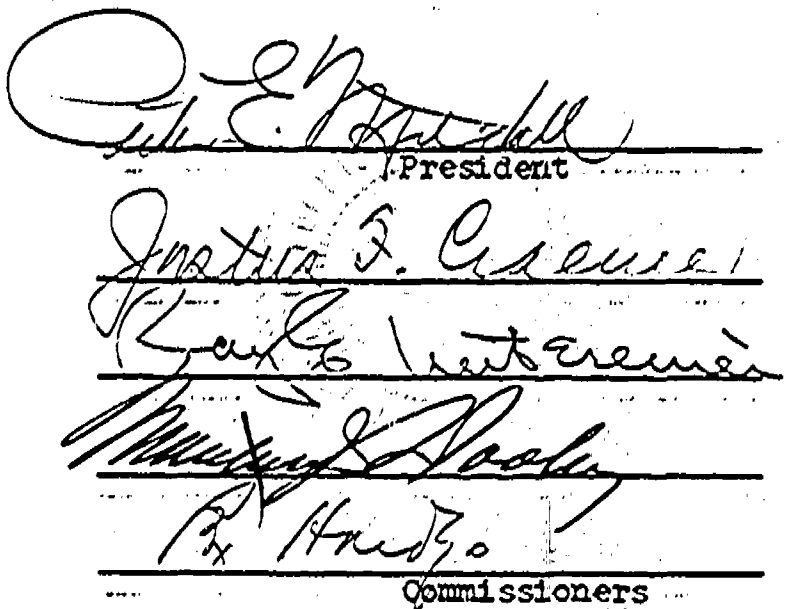 Peter E. Mitchell
President
Justus F. Craemer
Ray E. Untereiner
Dooley
Rex Hardy
Commissioners